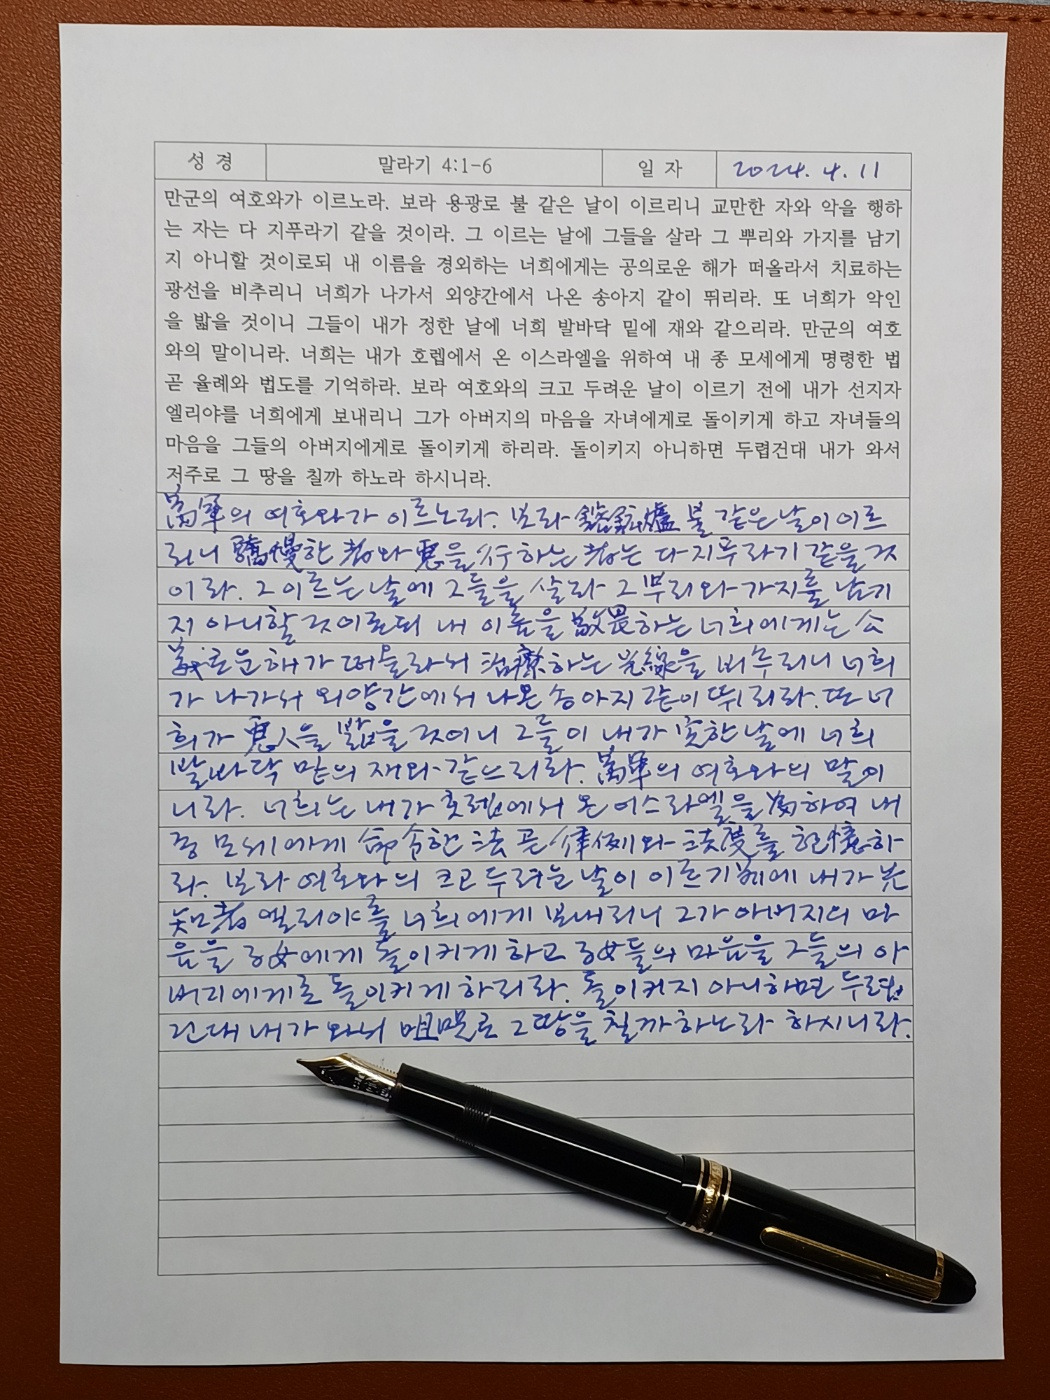 성 경 말라기 4:1-6 일 자 2024. 4. 11
만군의 여호와가 이르노라. 보라 용광로 불 같은 날이 이르리니 교만한 자와 악을 행하
는 자는 다 지푸라기 같을 것이라. 그 이르는 날에 그들을 살라 그 뿌리와 가지를 남기
지 아니할 것이로되 내 이름을 경외하는 너희에게는 공의로운 해가 떠올라서 치료하는
광선을 비추리니 너희가 나가서 외양간에서 나온 송아지 같이 뛰리라. 또 너희가 악인
을 밟을 것이니 그들이 내가 정한 날에 너희 발바닥 밑에 재와 같으리라. 만군의 여호
와의 말이니라. 너희는 내가 호렙에서 온 이스라엘을 위하여 내 종 모세에게 명령한 법
곧 율례와 법도를 기억하라. 보라 여호와의 크고 두려운 날이 이르기 전에 내가 선지자
엘리야를 너희에게 보내리니 그가 아버지의 마음을 자녀에게로 돌이키게 하고 자녀들의
마음을 그들의 아버지에게로 돌이키게 하리라. 돌이키지 아니하면 두렵건대 내가 와서
저주로 그 땅을 칠까 하노라 하시니라.
萬軍의 여호와가 이르노라. 보라 불 같은 날이 이르
리니 驕慢한 者와 惡을 行하는 者는 다 지푸라기 같을 것
이라. 그 이르는 날에 그들을 살라 그 뿌리와 가지를 남기
지 아니할 것이로되 내 이름을 敬畏하는 너희에게는 公
義로운 해가 떠올라서 治療하는 光線을 비추리니 너희
가 나가서 외양간에서 나온 송아지 같이 뛰리라. 또 너
희가 惡人을 밟을 것이니 그들이 내가 定한 날에 너희
발바닥 밑의 재와 같으리라. 萬軍의 여호와의 말이
니라. 너희는 내가 호렙에서 온 이스라엘을 爲하여 내
종 모세에게 命令한 法 곧 律例와 法度를 記憶하
라. 보라 여호와의 크고 두려운 날이 이르기 前에 내가 先
知者 엘리야를 너희에게 보내리니 그가 아버지의 마
음을 子女에게 돌이키게 하고 子女들의 마음을 그들의 아
버지에게로 돌이키게 하리라. 돌이키지 아니하면 두렵
건대 내가 와서 咀呪로 그 땅을 칠까 하노라 하시니라.